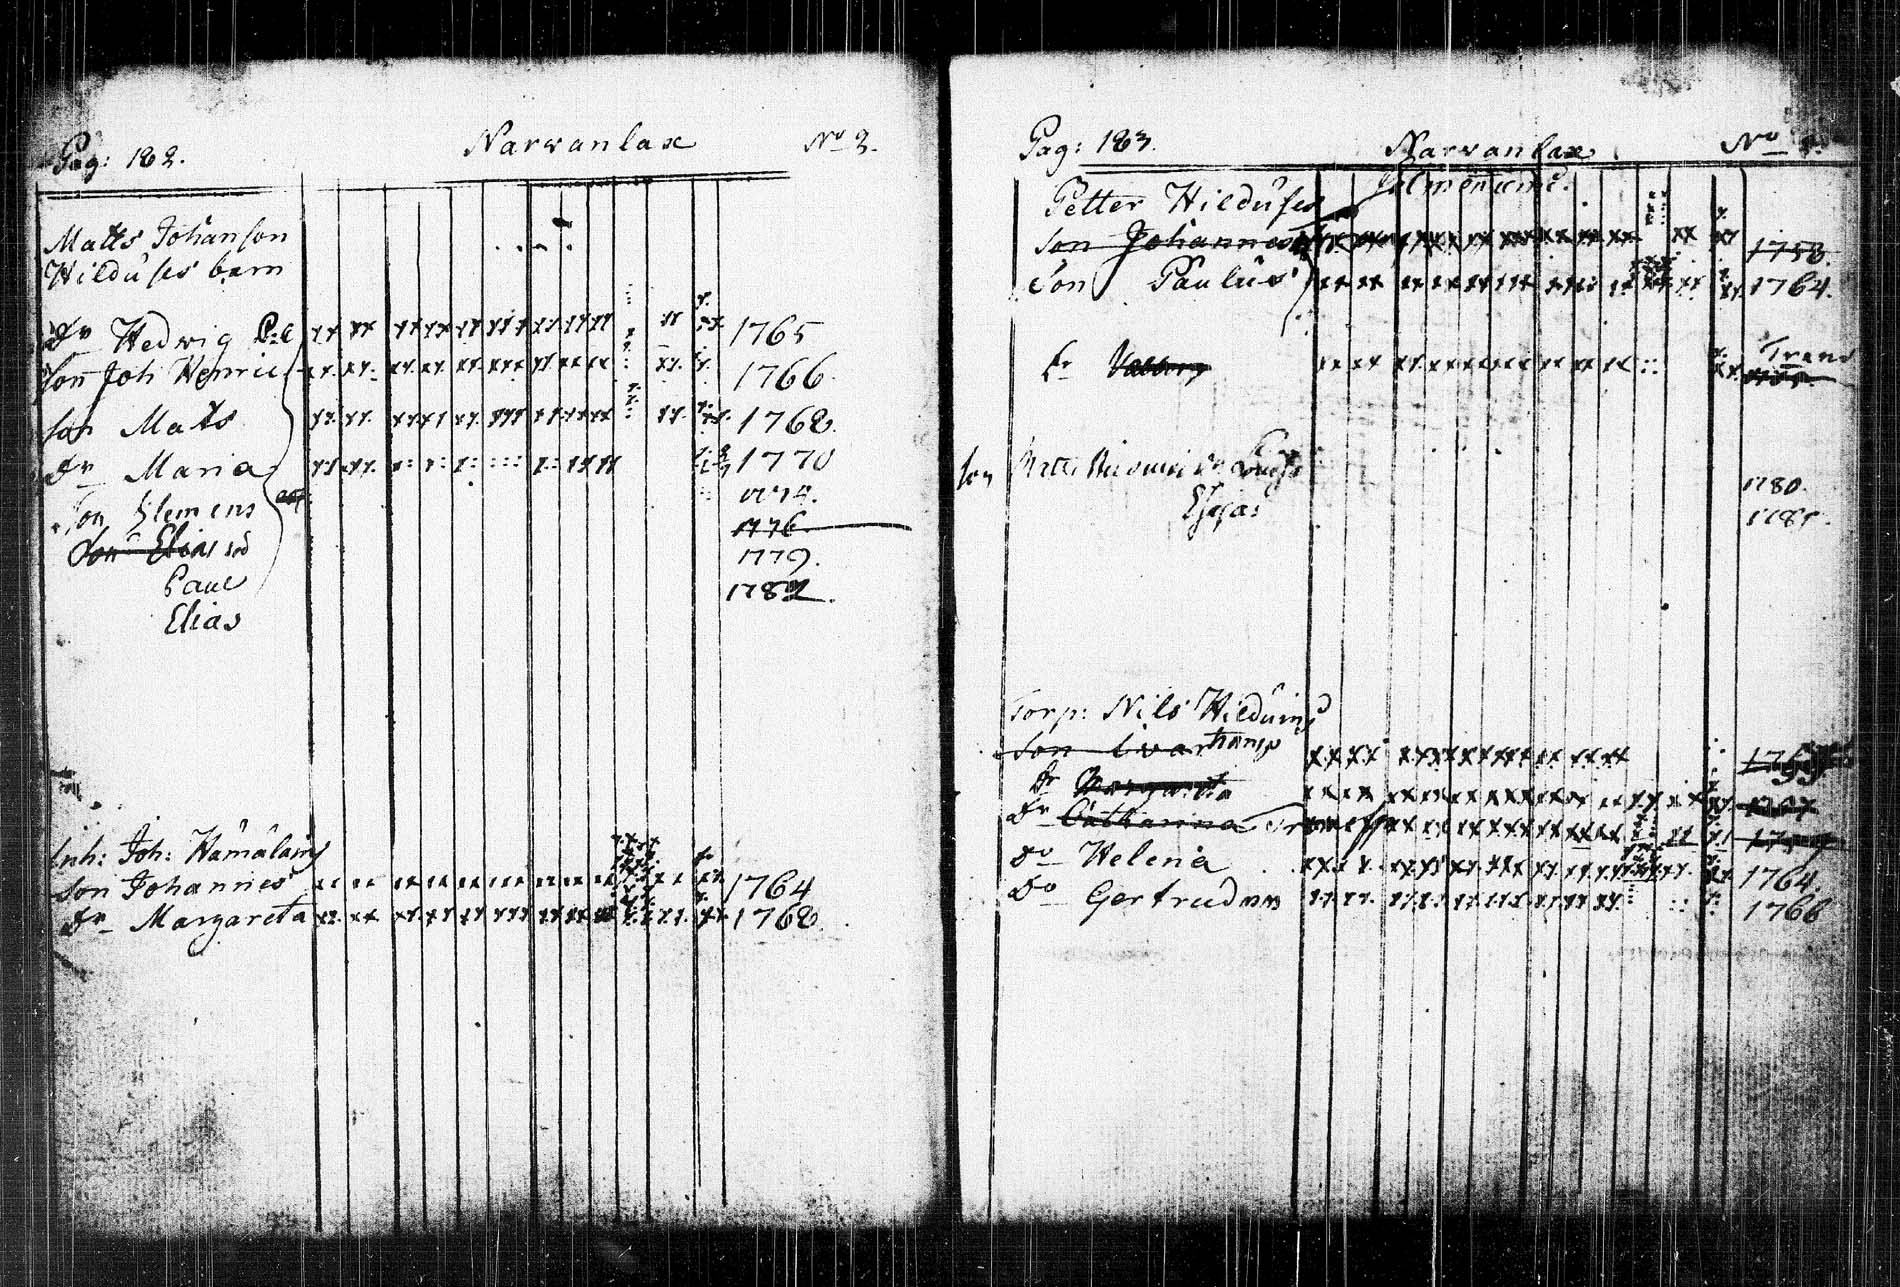 Pag: 182.
Narwanlax
No 2.
Matts Johanson
Hilduses barn
Dr Hedwig 1765
Son Joh Henric 1766
Son Mats 1768.
Dr Maria 1770
Son Clemens 1774.
Son Elias 1776
Paul 1779.
Elias 1782.
Inh: Joh: Hämäläinj
Son Johannes 1764
Dr Margareta 1768.
Pag: 183.
Narwanlax
No
Petter Hilduses
Son Johannes 1758
Son Paulus 1764.
Dr Valborg
Son Matts
1780.
Esaias 1785.
Torp: Nils Hilduinj
Son Ivar
Dr Margareta
Dr Catharina 1759
Do Helena 1764.
Do Gertrud 1766